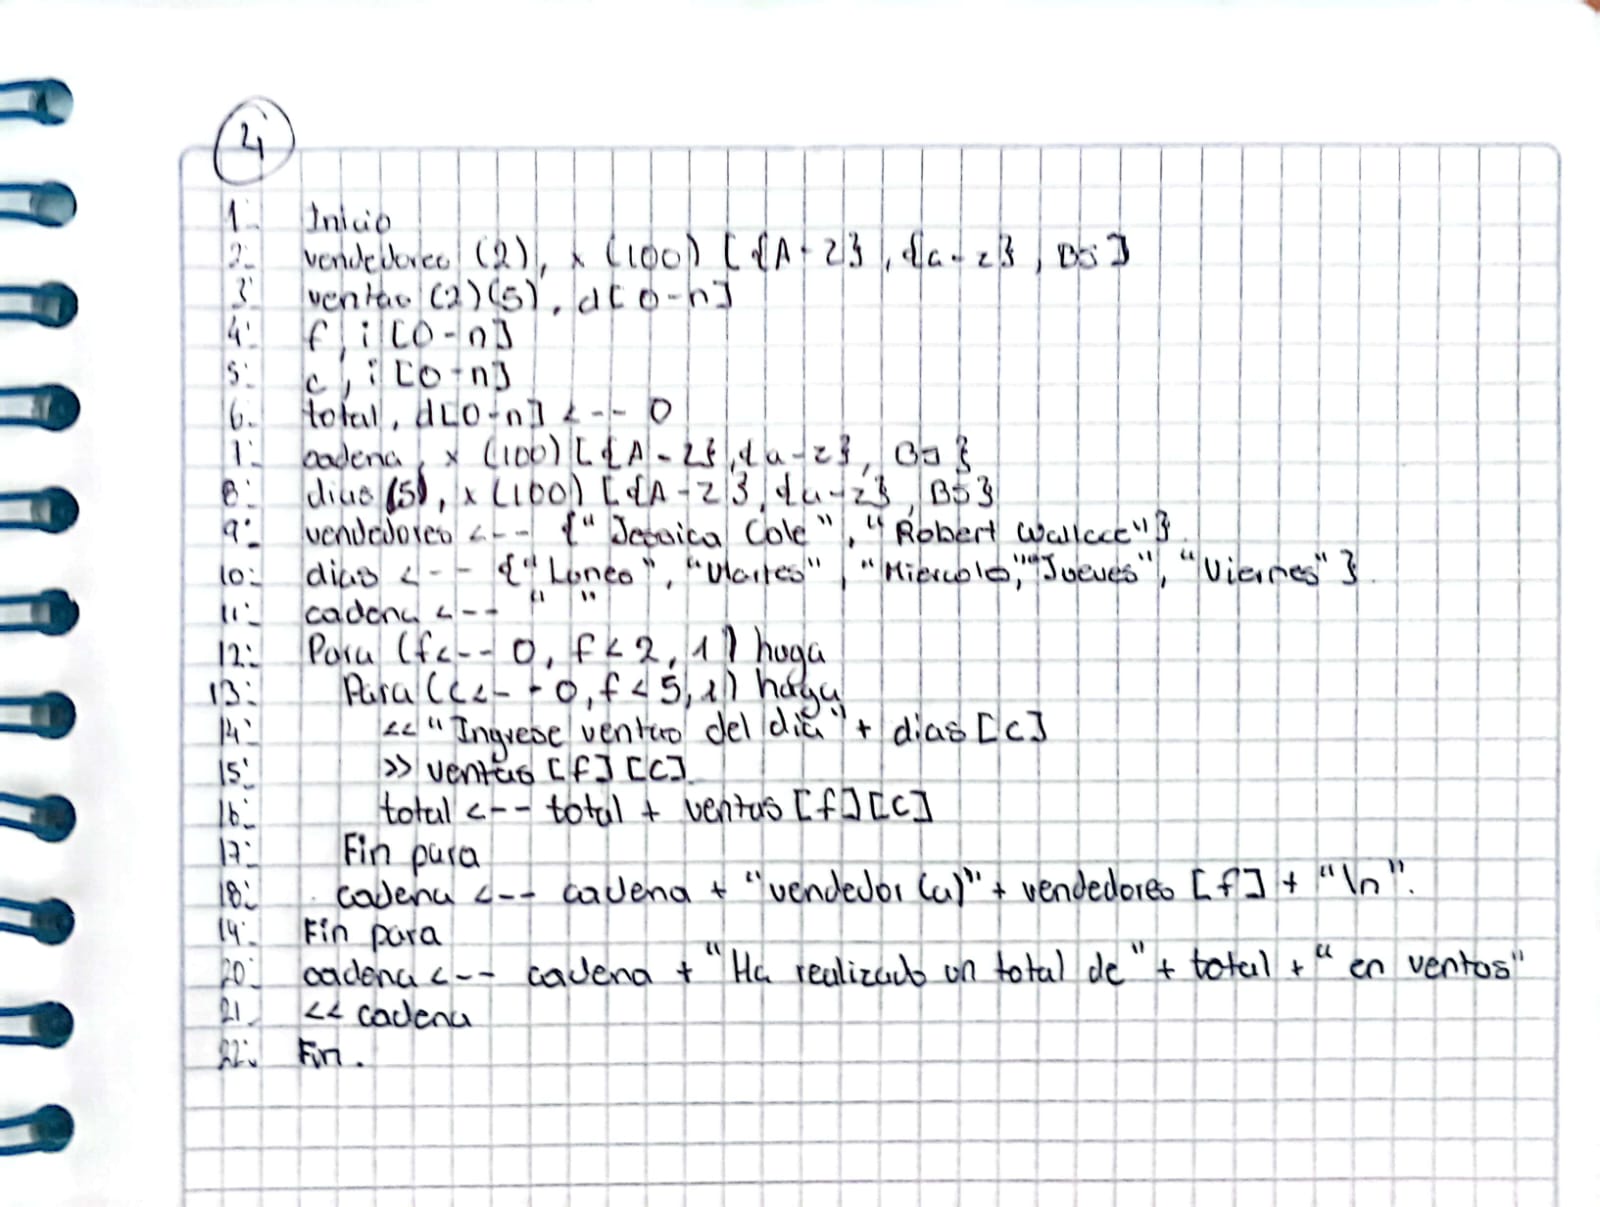 4
1- Inicio
2- vendedores (2), x (100) [{A-Z}, {a-z}, BS]
3- ventas (2)(5), d[0-n]
4- f, i [0-n]
5- c, i [0-n]
6- total, d[0-n] <-- 0
7- cadena, x (100) [{A-Z}, {a-z}, BS}
8- dias (5), x (100) [{A-Z}, {a-z}, BS}
9- vendedores <-- {"Jessica Cole", "Robert Wallace"}
10- dias <-- {"Lunes", "Martes", "Miercoles", "Jueves", "Viernes"}
11- cadena <-- " "
12- Para (f<-- 0, f < 2, 1) haga
13- Para (c<-- 0, f < 5, 1) haga
14- << "Ingrese ventas del dia" + dias [c]
15- >> ventas [f] [c]
16- total <-- total + ventas [f][c]
17- Fin para
18- cadena <-- cadena + "vendedor (a)" + vendedores [f] + "\n".
19- Fin para
20- cadena <-- cadena + "Ha realizado un total de" + total + " en ventas"
21- << cadena
22- Fin.